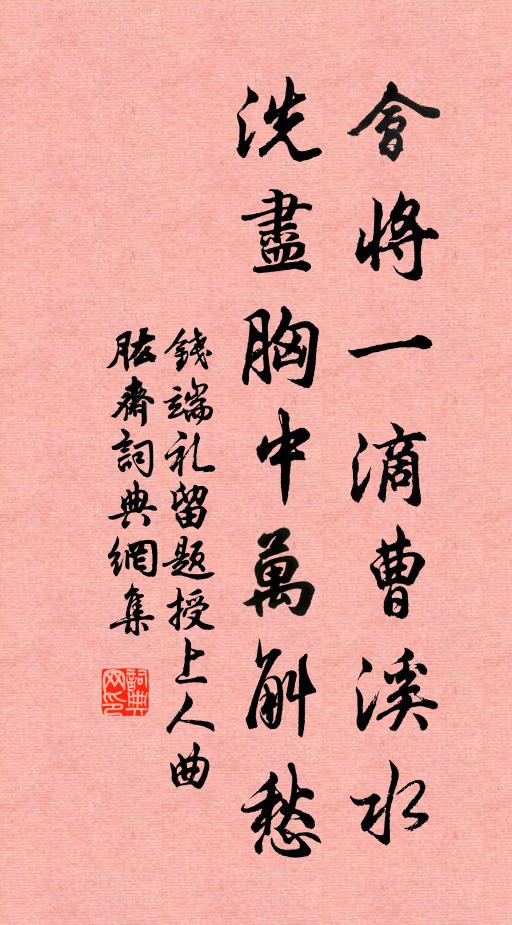 會將一滴曹溪水
洗盡胸中萬斛愁
錢端礼留題授上人曲
肱齋詞典網集
詞典网印